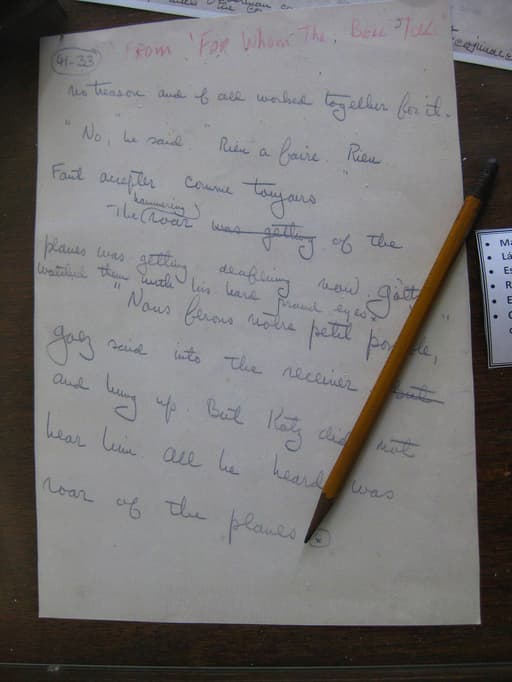 41-33
From 'For Whom The Bell Tolls'
no treason and if all worked together for it.
"No," he said. "Rien a faire. Rien.
Faut accepter comme toujours"
hammering
The (roar) was getting of the
planes was getting deafening now. Golz
watched them with his hard proud eyes.
"Nous ferons notre petit possible,"
Golz said into the receiver but
and hung up. But
hear him. All he heard was
roar of the planes